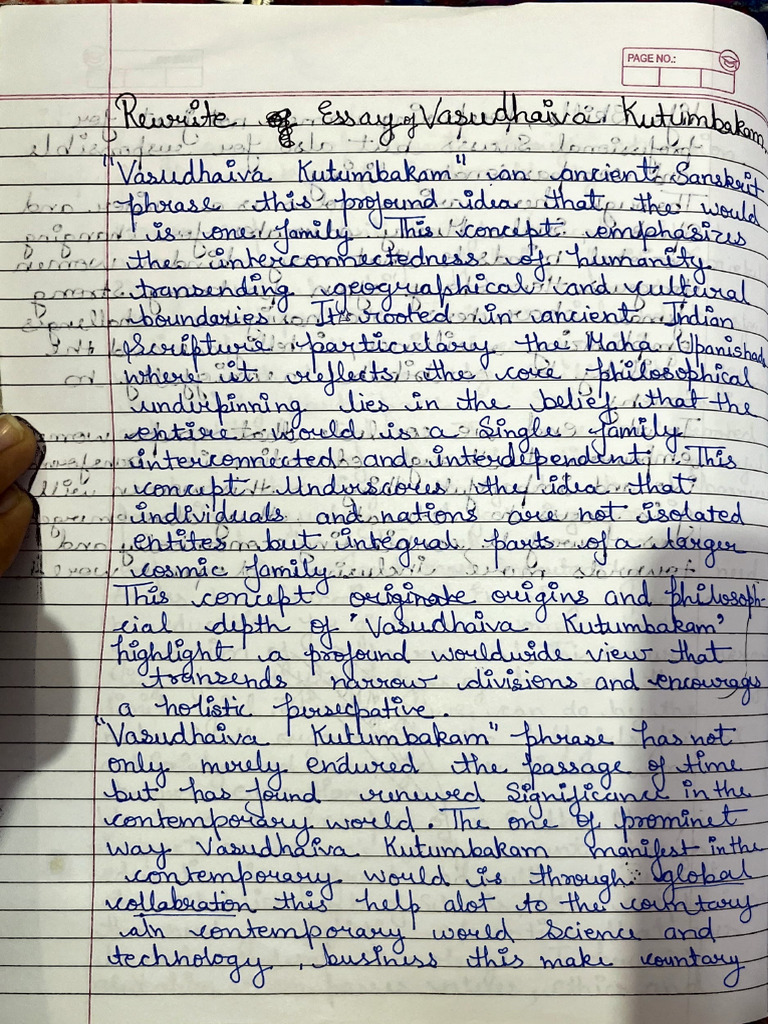 PAGE NO.:
Rewrite Essay of Vasudhaiva Kutumbakam.
"Vasudhaiva Kutumbakam" an ancient Sanskrit
phrase this profound idea that the would
is one family. This concept emphasizes
the interconnectedness of humanity
transending geographical and cultural
boundaries. It rooted in ancient Indian
Scripture particulary the Maha Upanishad
where it reflects the core philosophical
underpinning lies in the belief that the
entire world is a Single family
interconnected and interdependent. This
concept Underscores the idea that
individuals and nations are not isolated
entites but integral parts of a larger
cosmic family.
This concept originate origins and philosoph-
cial depth of 'Vasudhaiva Kutumbakam'
highlight a profound worldwide view that
transends narrow divisions and encourage
a holistic persecpative.
"Vasudhaiva Kutumbakam" phrase has not
only merely endured the passage of time
but has found renewed Significance in the
contemporary world. The one of prominet
way Vasudhaiva Kutumbakam manifest in the
contemporary world is through global
collabration this help alot to the countary
contemporary world Science and
technology, business this make countary